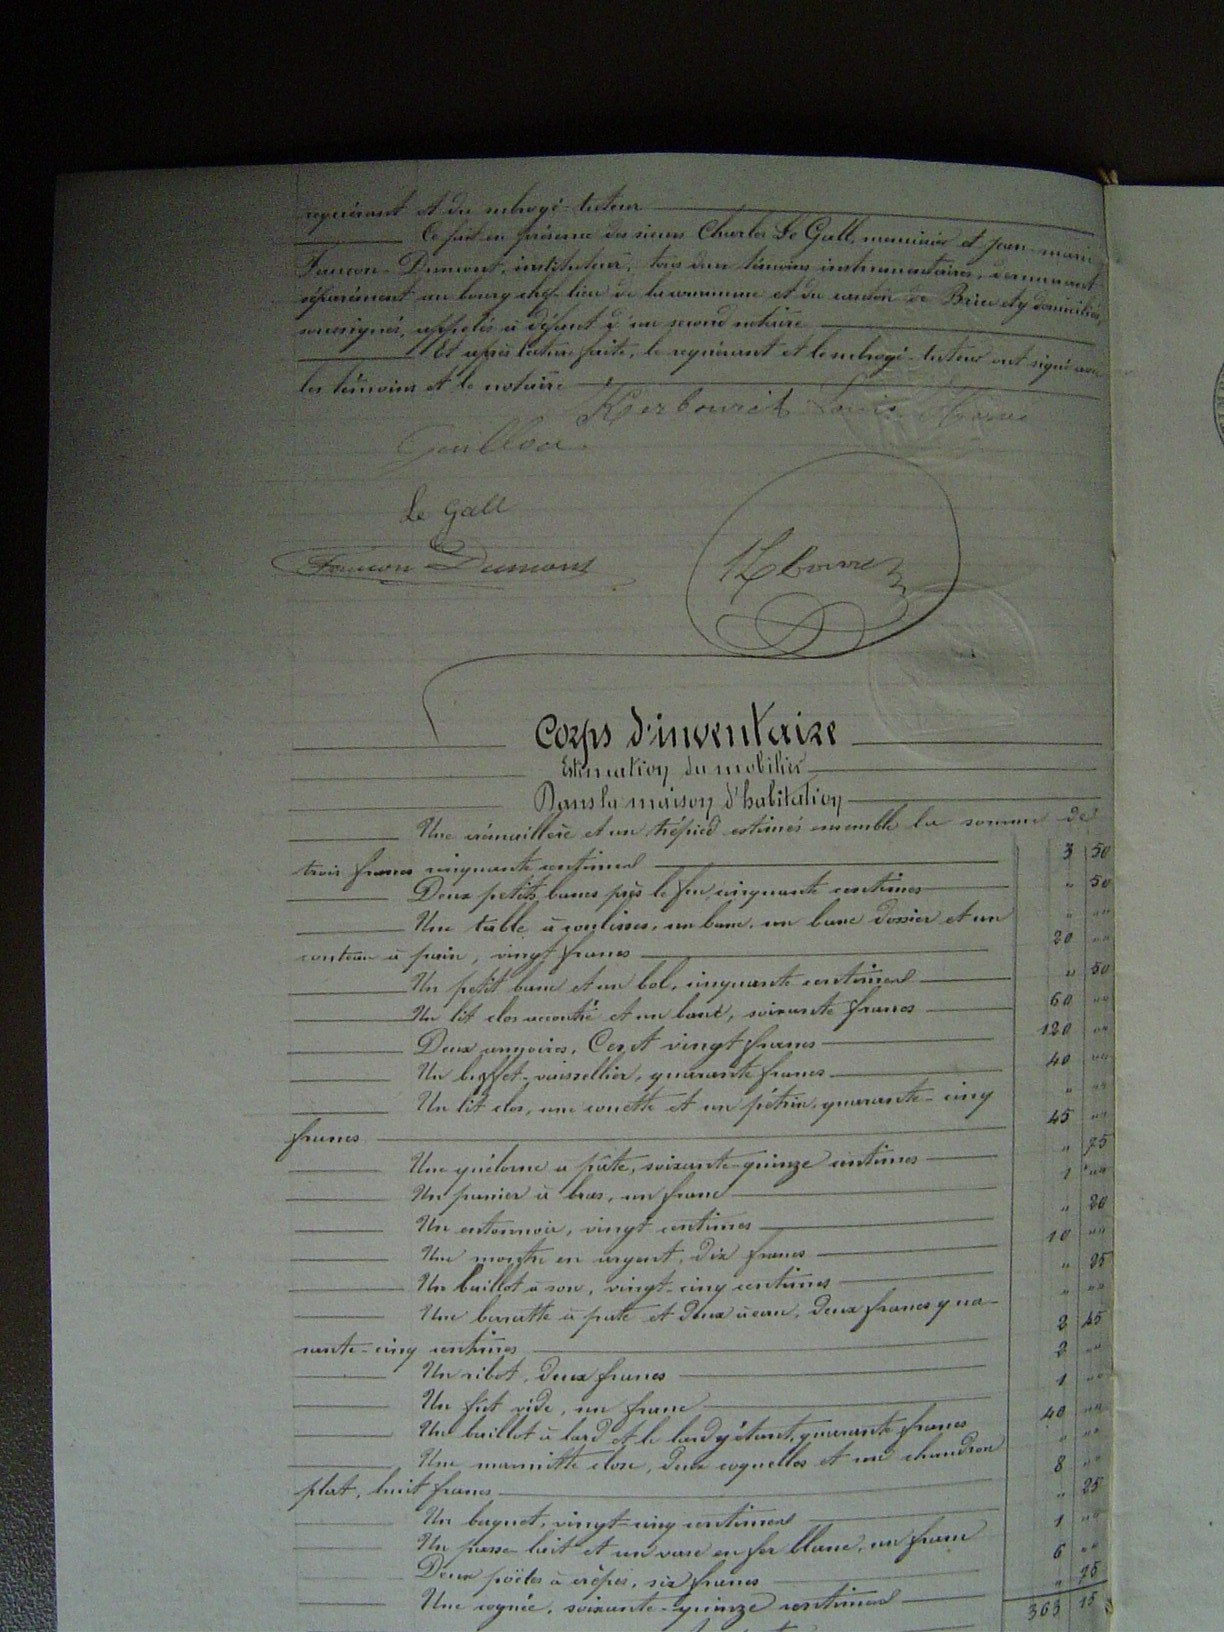 requérant et du subrogé-tuteur
Ce fait en présence des sieurs Charles Le Gall, menuisier et Jean-Marie
Faucon-Dumont, instituteur, tous deux témoins instrumentaires, demeurant
séparément au bourg chef-lieu de la commune et du canton de Briec et y domiciliés,
soussignés, appelés à défaut d'un second notaire
Et après lecture faite, le requérant et le subrogé-tuteur ont signé avec
les témoins et le notaire
Kerbourit Louis
Guillou
Le Gall
Faucon Dumont
Corps d'inventaire
Estimation du mobilier
Dans la maison d'habitation
Une crémaillère et un trépied estimés ensemble la somme de
trois francs cinquante centimes 3 50
Deux petits bancs près le feu, cinquante centimes " 50
Une table à coulisses, un banc, un banc dossier et un " ""
couteau à pain, vingt francs 20 ""
Un petit banc et un bol, cinquante centimes " 50
Un lit clos accoutré et un banc, soixante francs 60 ""
Deux armoires, Cent vingt francs 120 ""
Un buffet-vaissellier, quarante francs 40 ""
Un lit clos, une couette et un pétrin, quarante-cinq " ""
francs 45 ""
Une guédorne à pâte, soixante-quinze centimes " 75
Un panier à bras, un franc 1 ""
Un entonnoir, vingt centimes " 20
Une montre en argent, dix francs 10 ""
Un baillot à son, vingt-cinq centimes " 25
Une baratte à pate et deux à eau, deux francs qua- " ""
rante-cinq centimes 2 45
Un ribot, deux francs 2 ""
Un fût vide, un franc 1 ""
Un baillot à lard et le lard y étant, quarante francs 40 ""
Une marmitte close, deux coquelles et un chaudron " ""
plat, huit francs 8 ""
Un baquet, vingt-cinq centimes " 25
Un passe-lait et un vase en fer blanc, un franc 1 ""
Deux poëles à crêpes, six francs 6 ""
Une cognée, soixante-quinze centimes " 75
363 15